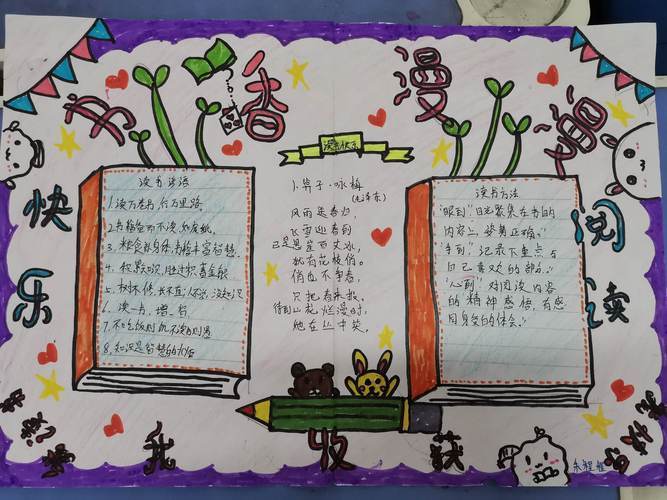 书香漫
快乐
阅读
读书谚语
1.读万卷书,行万里路。
2.书籍备而不读如废纸。
3.粮食补身体,书籍丰富智慧。
4.积累知识,胜过积蓄金银
5.树不修,长不直;人不学,没知识
6.读一书,增一智
7.不吃饭则饥,不读书则愚
8.知识是智慧的火炬
读书快乐
卜算子·咏梅
(毛泽东)
风雨送春归,
飞雪迎春到
已是悬崖百丈冰,
犹有花枝俏。
俏也不争春,
只把春来报。
待到山花烂漫时,
她在丛中笑。
读书方法
"眼到":目光聚集在书的
内容上,姿势正确。
"手到":记录下重点与
自己喜欢的部分。
"心到"对阅读内容
的精神感悟,有感
同身受的体会。
我收获